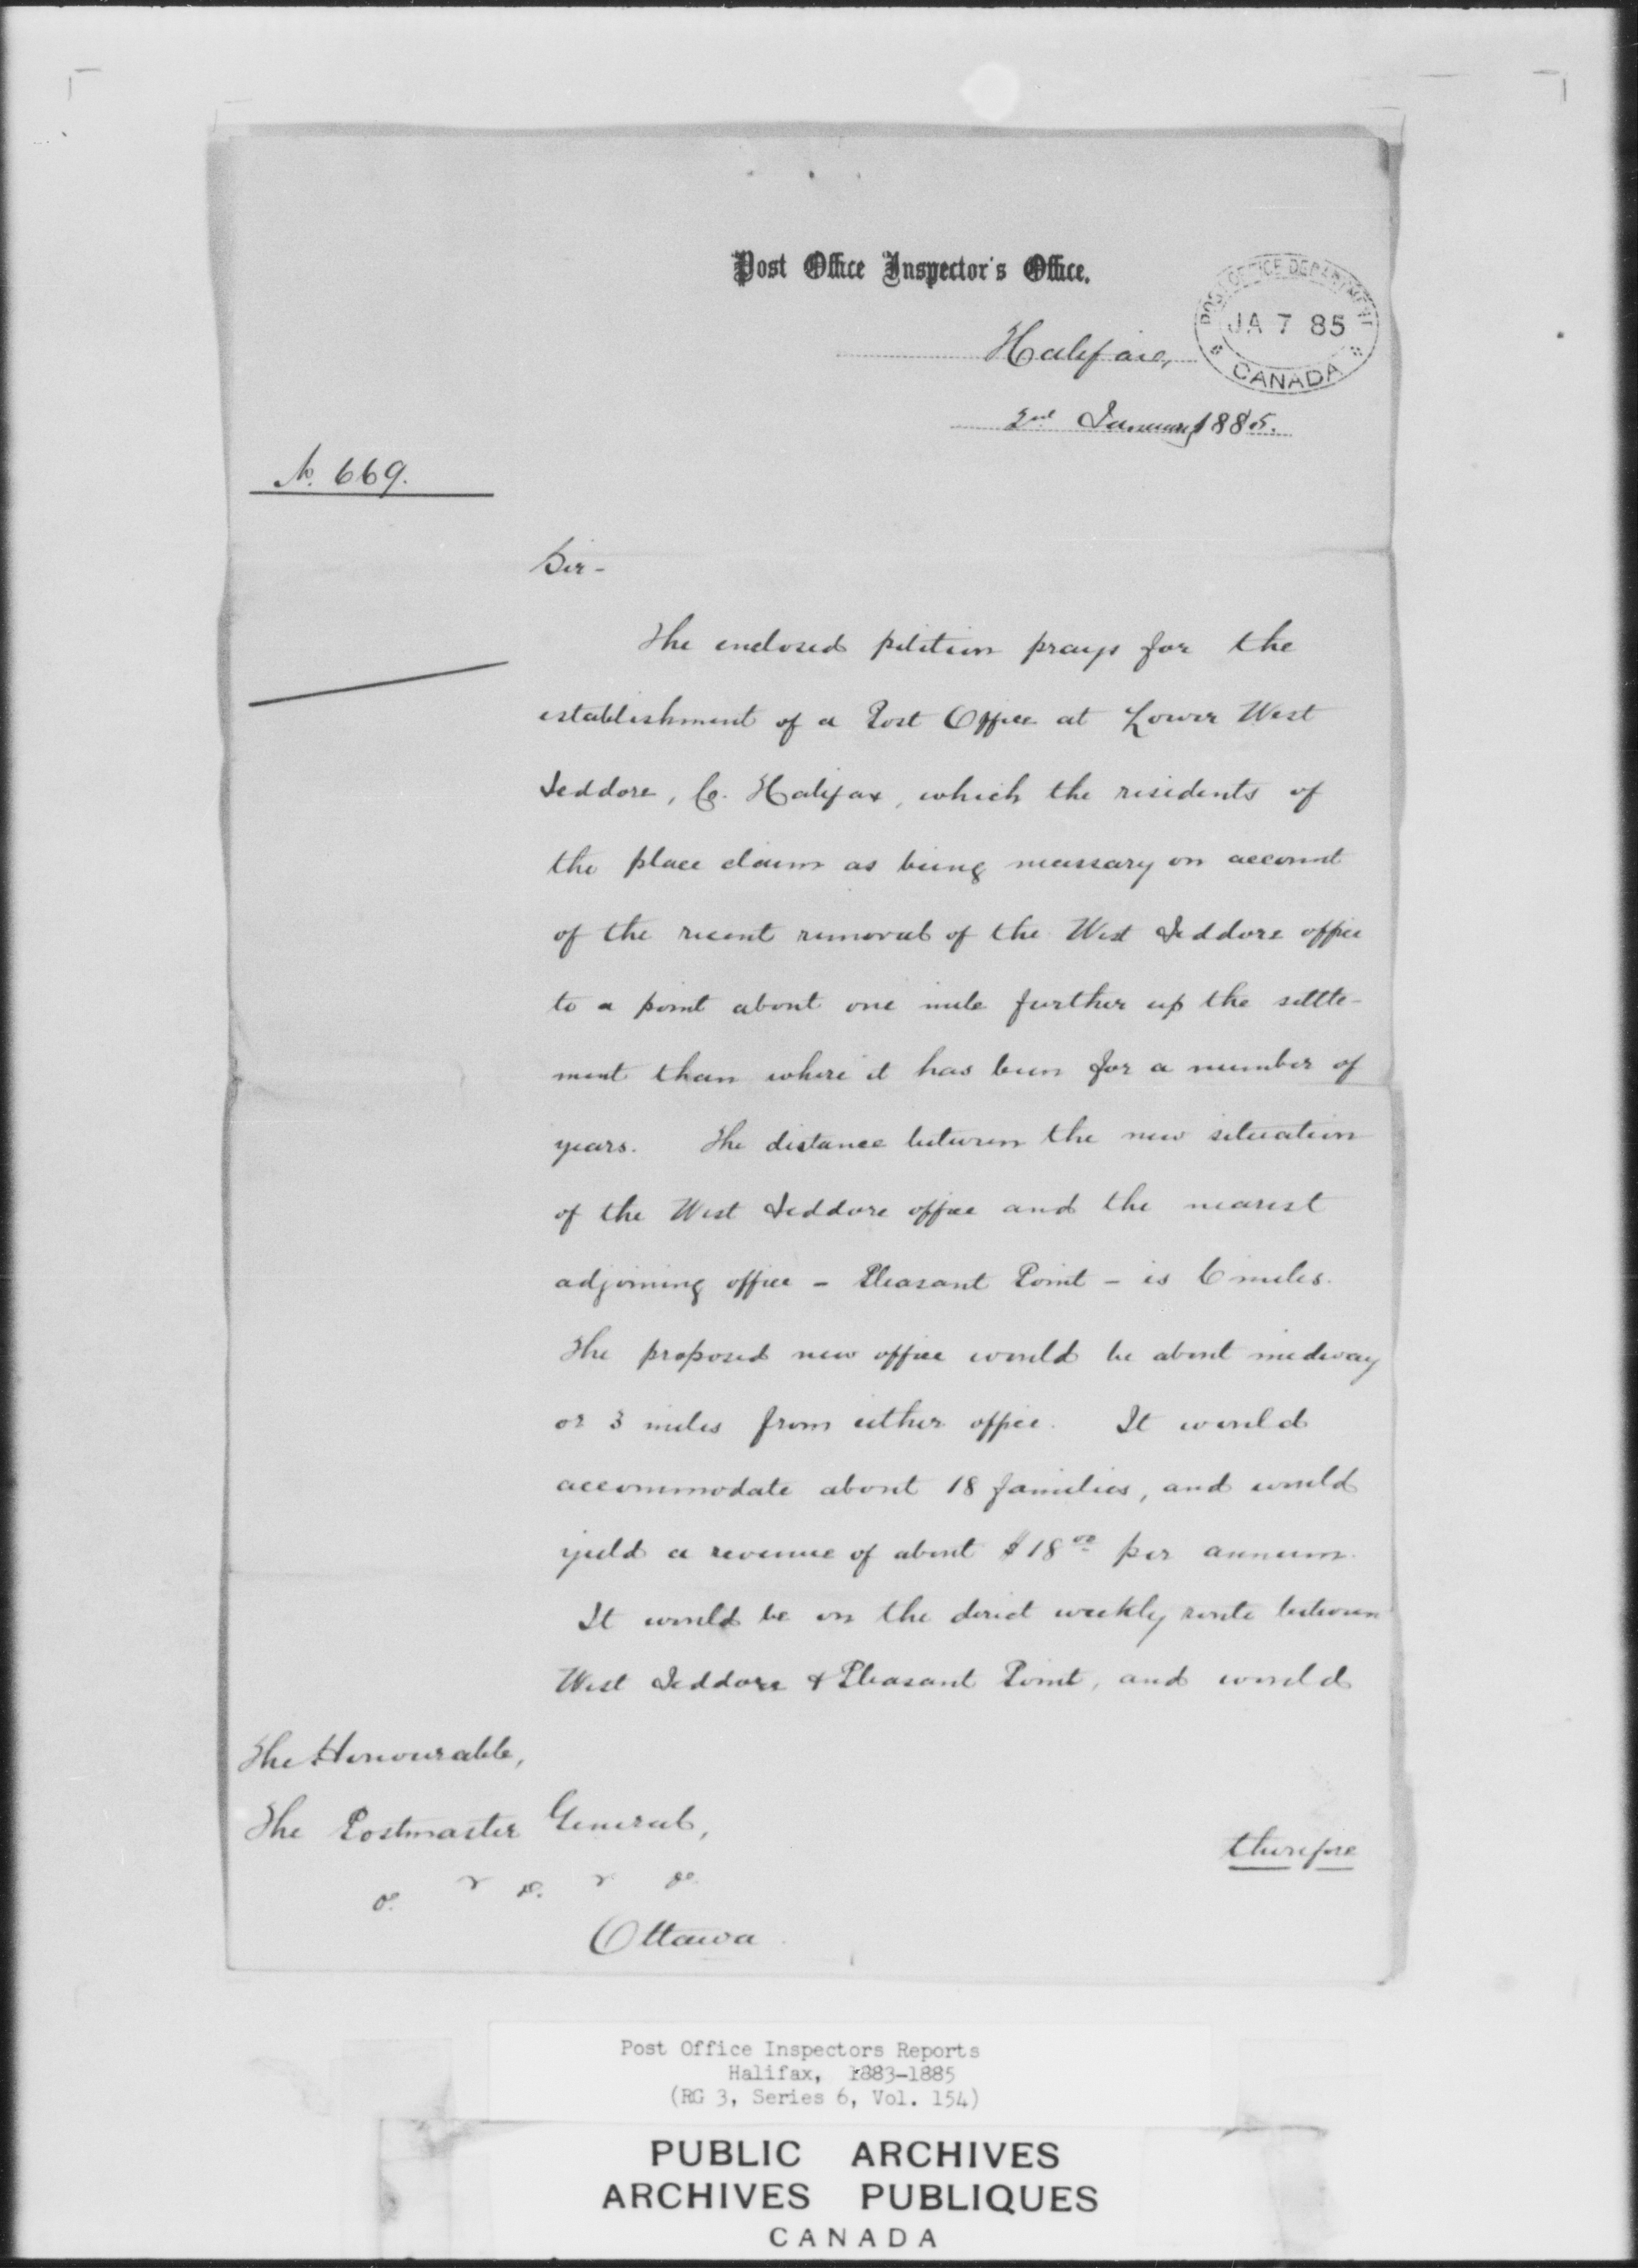 Post Office Inspector's Office.
POST OFFICE DEPARTMENT
JA 7 85
CANADA
Halifax,
2nd January 1885.
No. 669.
Sir-
The enclosed petition prays for the
establishment of a Post Office at Lower West
Jeddore, Co. Halifax, which the residents of
the place claim as being necessary on account
of the recent removal of the West Jeddore office
to a point about one mile further up the settle-
ment than where it has been for a number of
years. The distance between the new situation
of the West Jeddore office and the nearest
adjoining office - Pleasant Point - is 6 miles.
The proposed new office would be about midway
or 3 miles from either office. It would
accommodate about 18 families, and would
yield a revenue of about $18 00 per annum.
It would be on the direct weekly route between
West Jeddore & Pleasant Point, and would
The Honourable,
The Postmaster General,
therefore
Ottawa.
Post Office Inspectors Reports
Halifax, 1883-1885
(RG 3, Series 6, Vol. 154)
PUBLIC ARCHIVES
ARCHIVES PUBLIQUES
CANADA